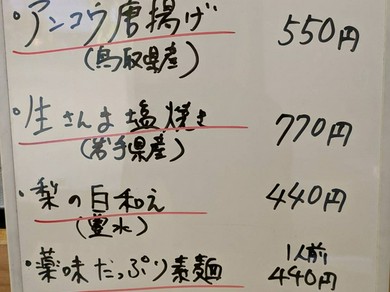 ・アンコウ唐揚げ 550円
(鳥取県産)
・生さんま塩焼き 770円
(岩手県産)
・梨の白和え 440円
(豊水)
・薬味たっぷり素麺 1人前
440円